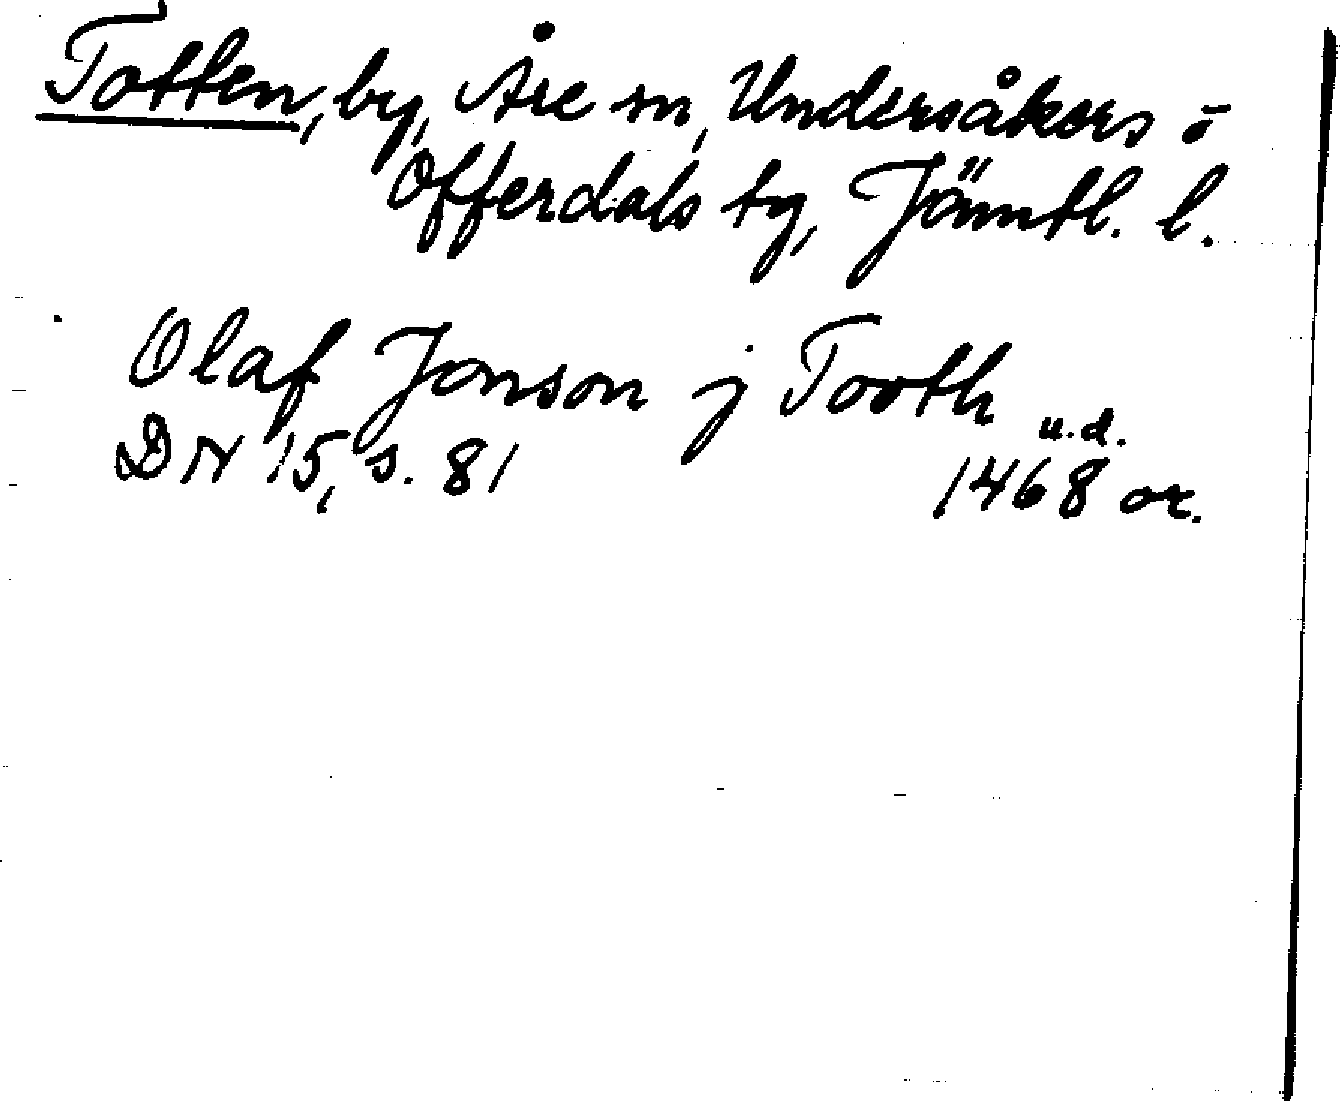 Totten, by, Åre sn, Undersåkers o
Offerdals tg, Jämtl. l.
Olaf Jonson j Tooth
u.d.
DN 15, s. 81 1468 or.